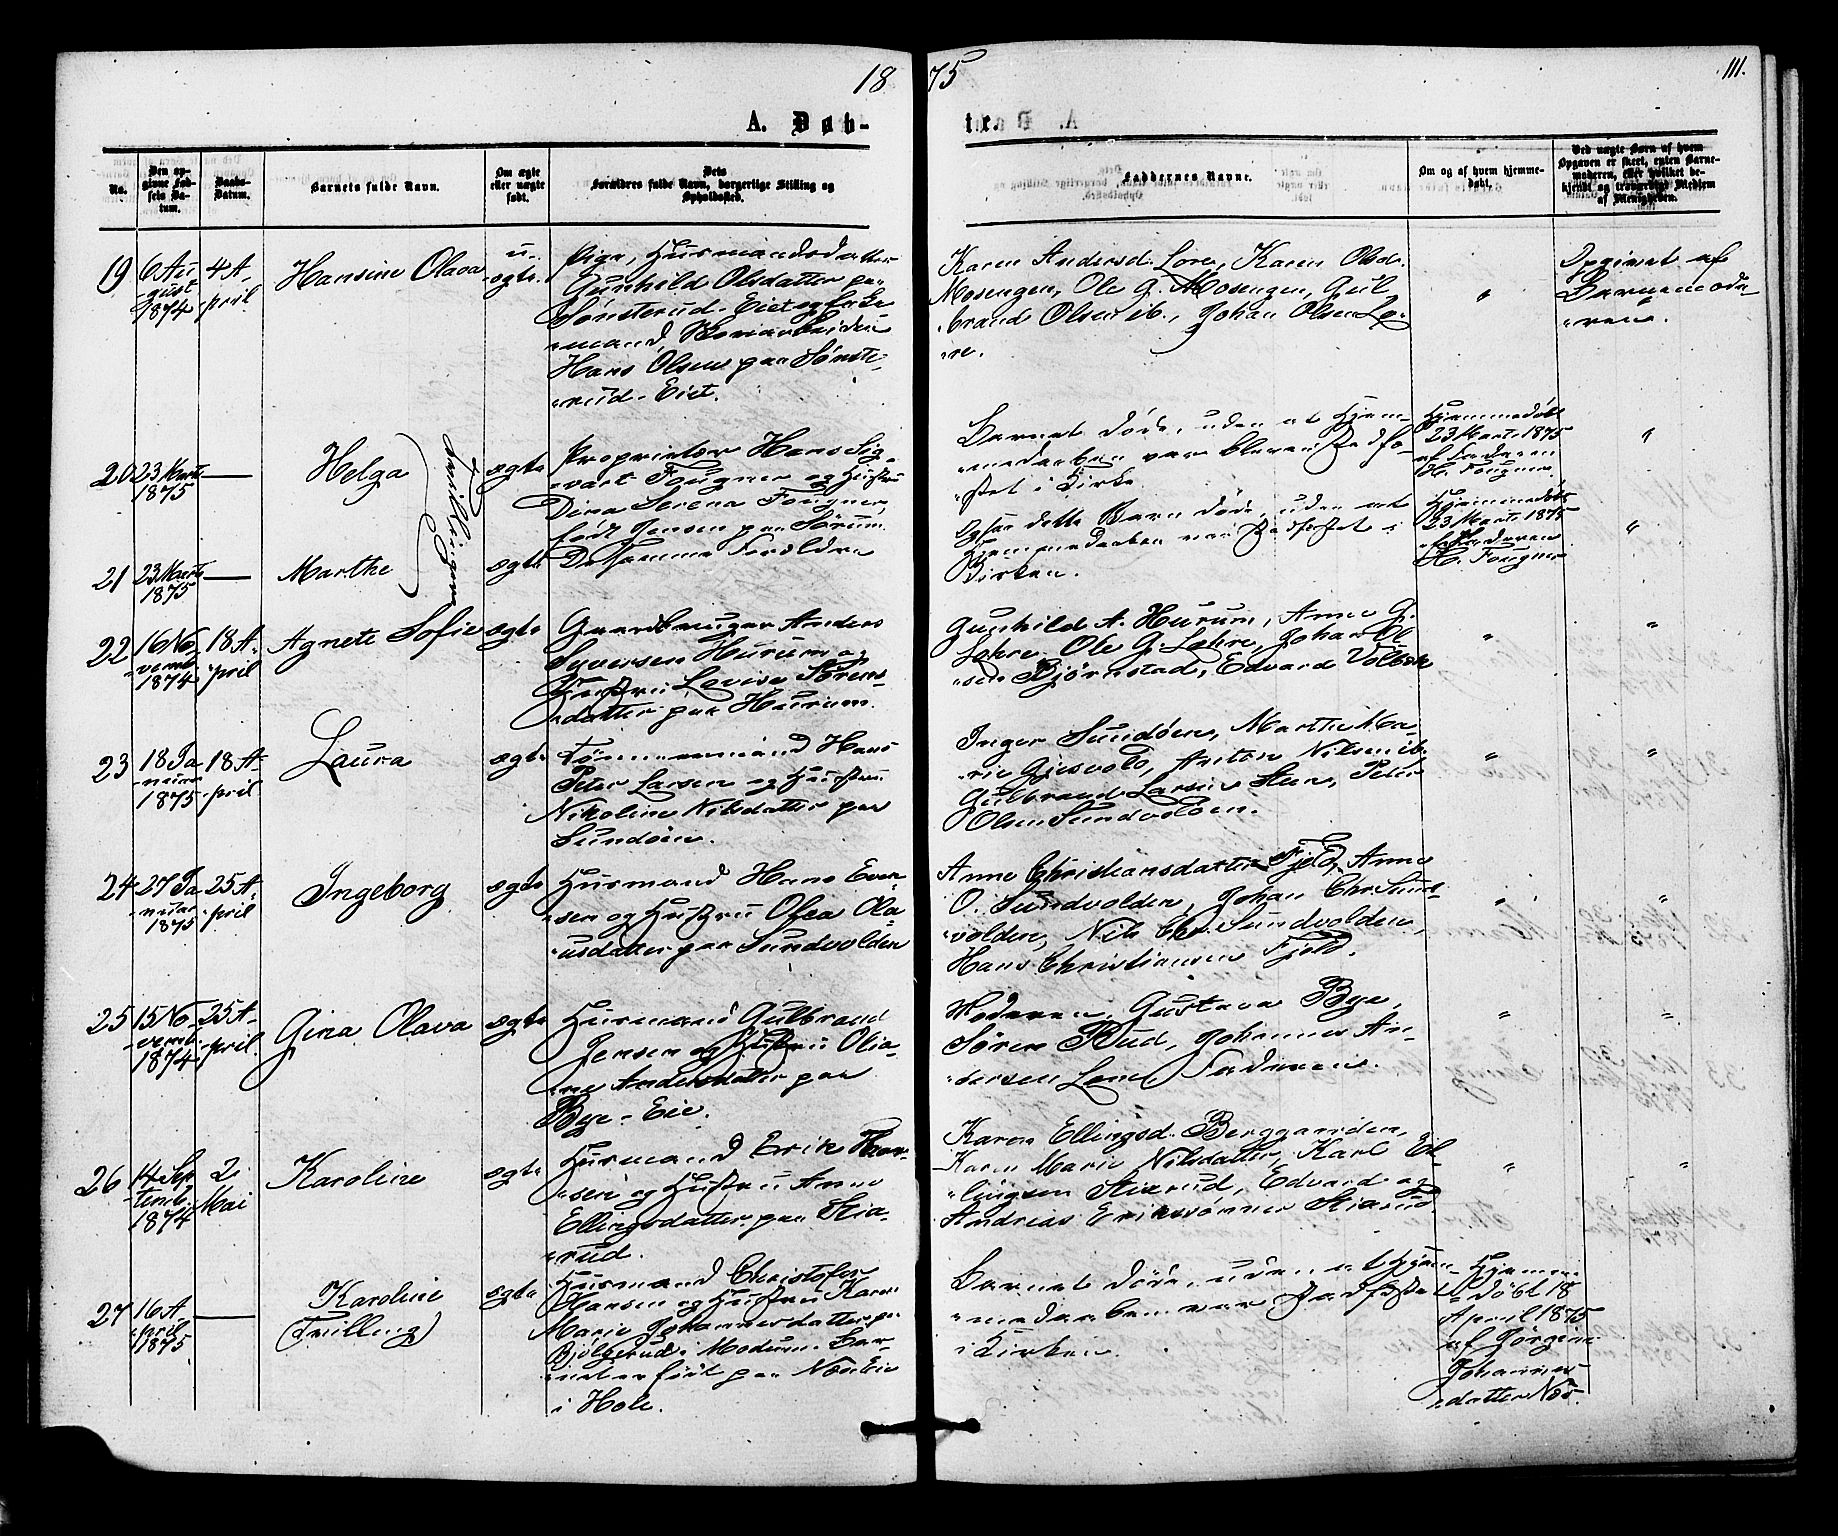 18
75
111.
A. Døb-
te.
No.
Den op-
givne Fød-
sels Da-
tum.
Daabs-
Datum.
Barnets fulde Navn.
Om ægte
eller uægte
født.
Dets
Forældres fulde Navn, borgerlige Stilling og
Opholdssted.
Faddernes Navne.
Om og af hvem hjemme-
døbt.
Ved uægte Børn af hvem
Opgaven er skeet, enten Barne-
moderen, eller hvilket be-
kjendt og troværdigt Medlem
af Menigheden.
19
6 Au
gust
1874
4 A-
pril
Hansine Olava
u-
ægte.
Pige, Husmandsdatter
Gunhild Olsdatter paa
Sønsterud-Eiet og Enke
mand,
Hans Olsen paa Sønste-
rud-Eiet.
Karen Andersd. Lore, Karen Olsdr.
Mosengen, Ole G. Mosengen, Gul
brand Olsen ib., Johan Olsen Lo-
re.
"
Opgivet af
Barnemode-
ren.
20
23 Marts
1875
—
Helga
Tvillinger
ægte
Proprietær Hans Sig-
vart Fougner og Hustru
Dina Serena Fougner,
født Jensen paa Sørum.
Barnet døde, uden at Hjem-
medaaben var bleven stadfæ-
stet i Kirke
Hjemmedøbt
23 Marts 1875
af Faderen
H. Fougner
"
21
23 Marts
1875
—
Marthe
ægte
De samme Forældre
Ogsaa dette Barn døde, uden at
Hjemmedaaben var stadfæstet i
Kirken.
Hjemmedøbt
23 Marts 1875
af Faderen
H. Fougner
"
22
16 No-
vemb.
1874
18 A-
pril
Agnete Sofie
ægte
Gaardbruger Anders
Syversen Hurum og
Hustru Lovise Sørens-
datter paa Hurum.
Gunhild A. Hurum, Anne G.
Lehre, Ole G. Lehre, Johan Ol
sen Bjørnstad, Edvard
"
"
23
18 Ja
nuar
1875
18 A-
pril
Laura
ægte
Tømmermand Hans
Peter Larsen og Hustru
Nikoline Nilsdatter paa
Sundøen.
Inger Sundøen, Marthe Ma-
rie Gjesvold, Anton Nilsen ib.
Gulbrand Larsen Steen, Peter
Olsen Sundvolden.
"
"
24
27 Ja
nuar
1875
25 A-
pril
Ingeborg
ægte
Husmand Hans Even-
sen og Hustru Olea Ola
usdatter paa Sundvolden
Anne Christiansdatter Fjeld, Anne
O. Sundvolden, Johan Chr. Sund
volden, Nils Chr. Sundvolden,
Hans Christiansen Fjeld.
"
"
25
15 No-
vemb.
1874
25 A-
pril.
Gina Olava
ægte
Husmand Gulbrand
Jensen og Hustru Olia-
ne Andersdatter paa
Bye-Eie.
Moderen, Gustava Bye,
Søren Rud, Johannes An-
dersen Lore Faderen.
"
"
26
14 Sep
temb.
1874
2
Mai
Karoline
ægte
Husmand Erik Han-
sen og Hustru Anne
Ellingsdatter paa Stia-
rud.
Karen Ellingsd. Berggaarden,
Karen Marie Nilsdatter, Karl El-
lingsen Stiarud, Edvard og
Andreas Erikssønner Stiarud.
"
"
27
16 A-
pril
1875
—
Karoline
(Trilling)
ægte
Husmand Christofer
Hansen og Hustru Karen
Marie Johannesdatter paa
Bjølgerud i Modum. Bar-
net er født paa Næs Eie
i Hole.
Barnet døde, uden at Hjem-
medaaben var stadfæstet
i Kirken.
Hjemme-
døbt 18
April 1875
af Jørgine
Johannes-
datter Næs.